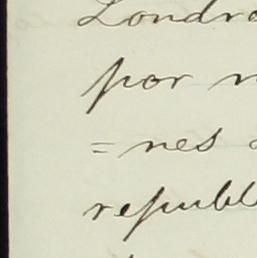 Londre
por n
=nes
republ